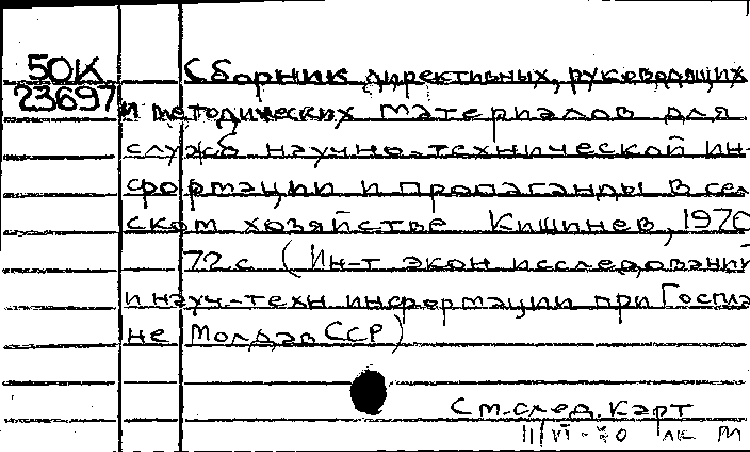 50К
23697
Сборник директивных, руководящих
и методических материалов для
служб научно-технической ин-
формации и пропаганды в сел
ском хозяйстве Кишинев, 1970
72 с (Ин-т экон исследований
и науч-техн информации при Госпла
не Молдав ССР)
См. след. карт
11/VI-70 лк М